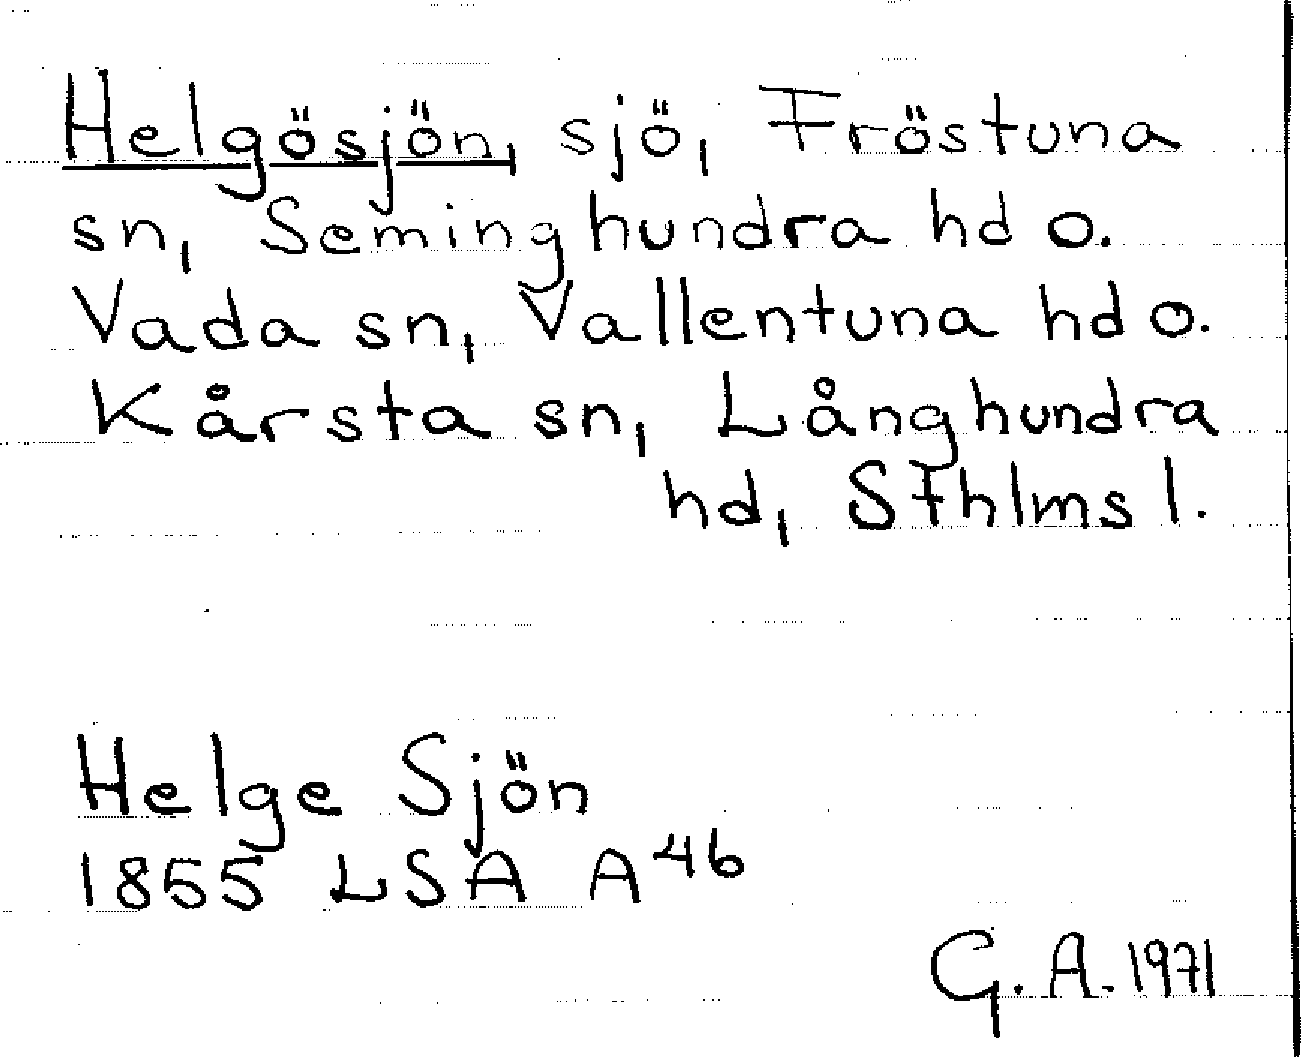 Helgösjön, sjö, Fröstuna
sn, Seminghundra hd o.
Vada sn, Vallentuna hd o.
Kårsta sn, Långhundra
hd, Sthlms l.
Helge Sjön
1855 LSA A 46
G. A. 1971